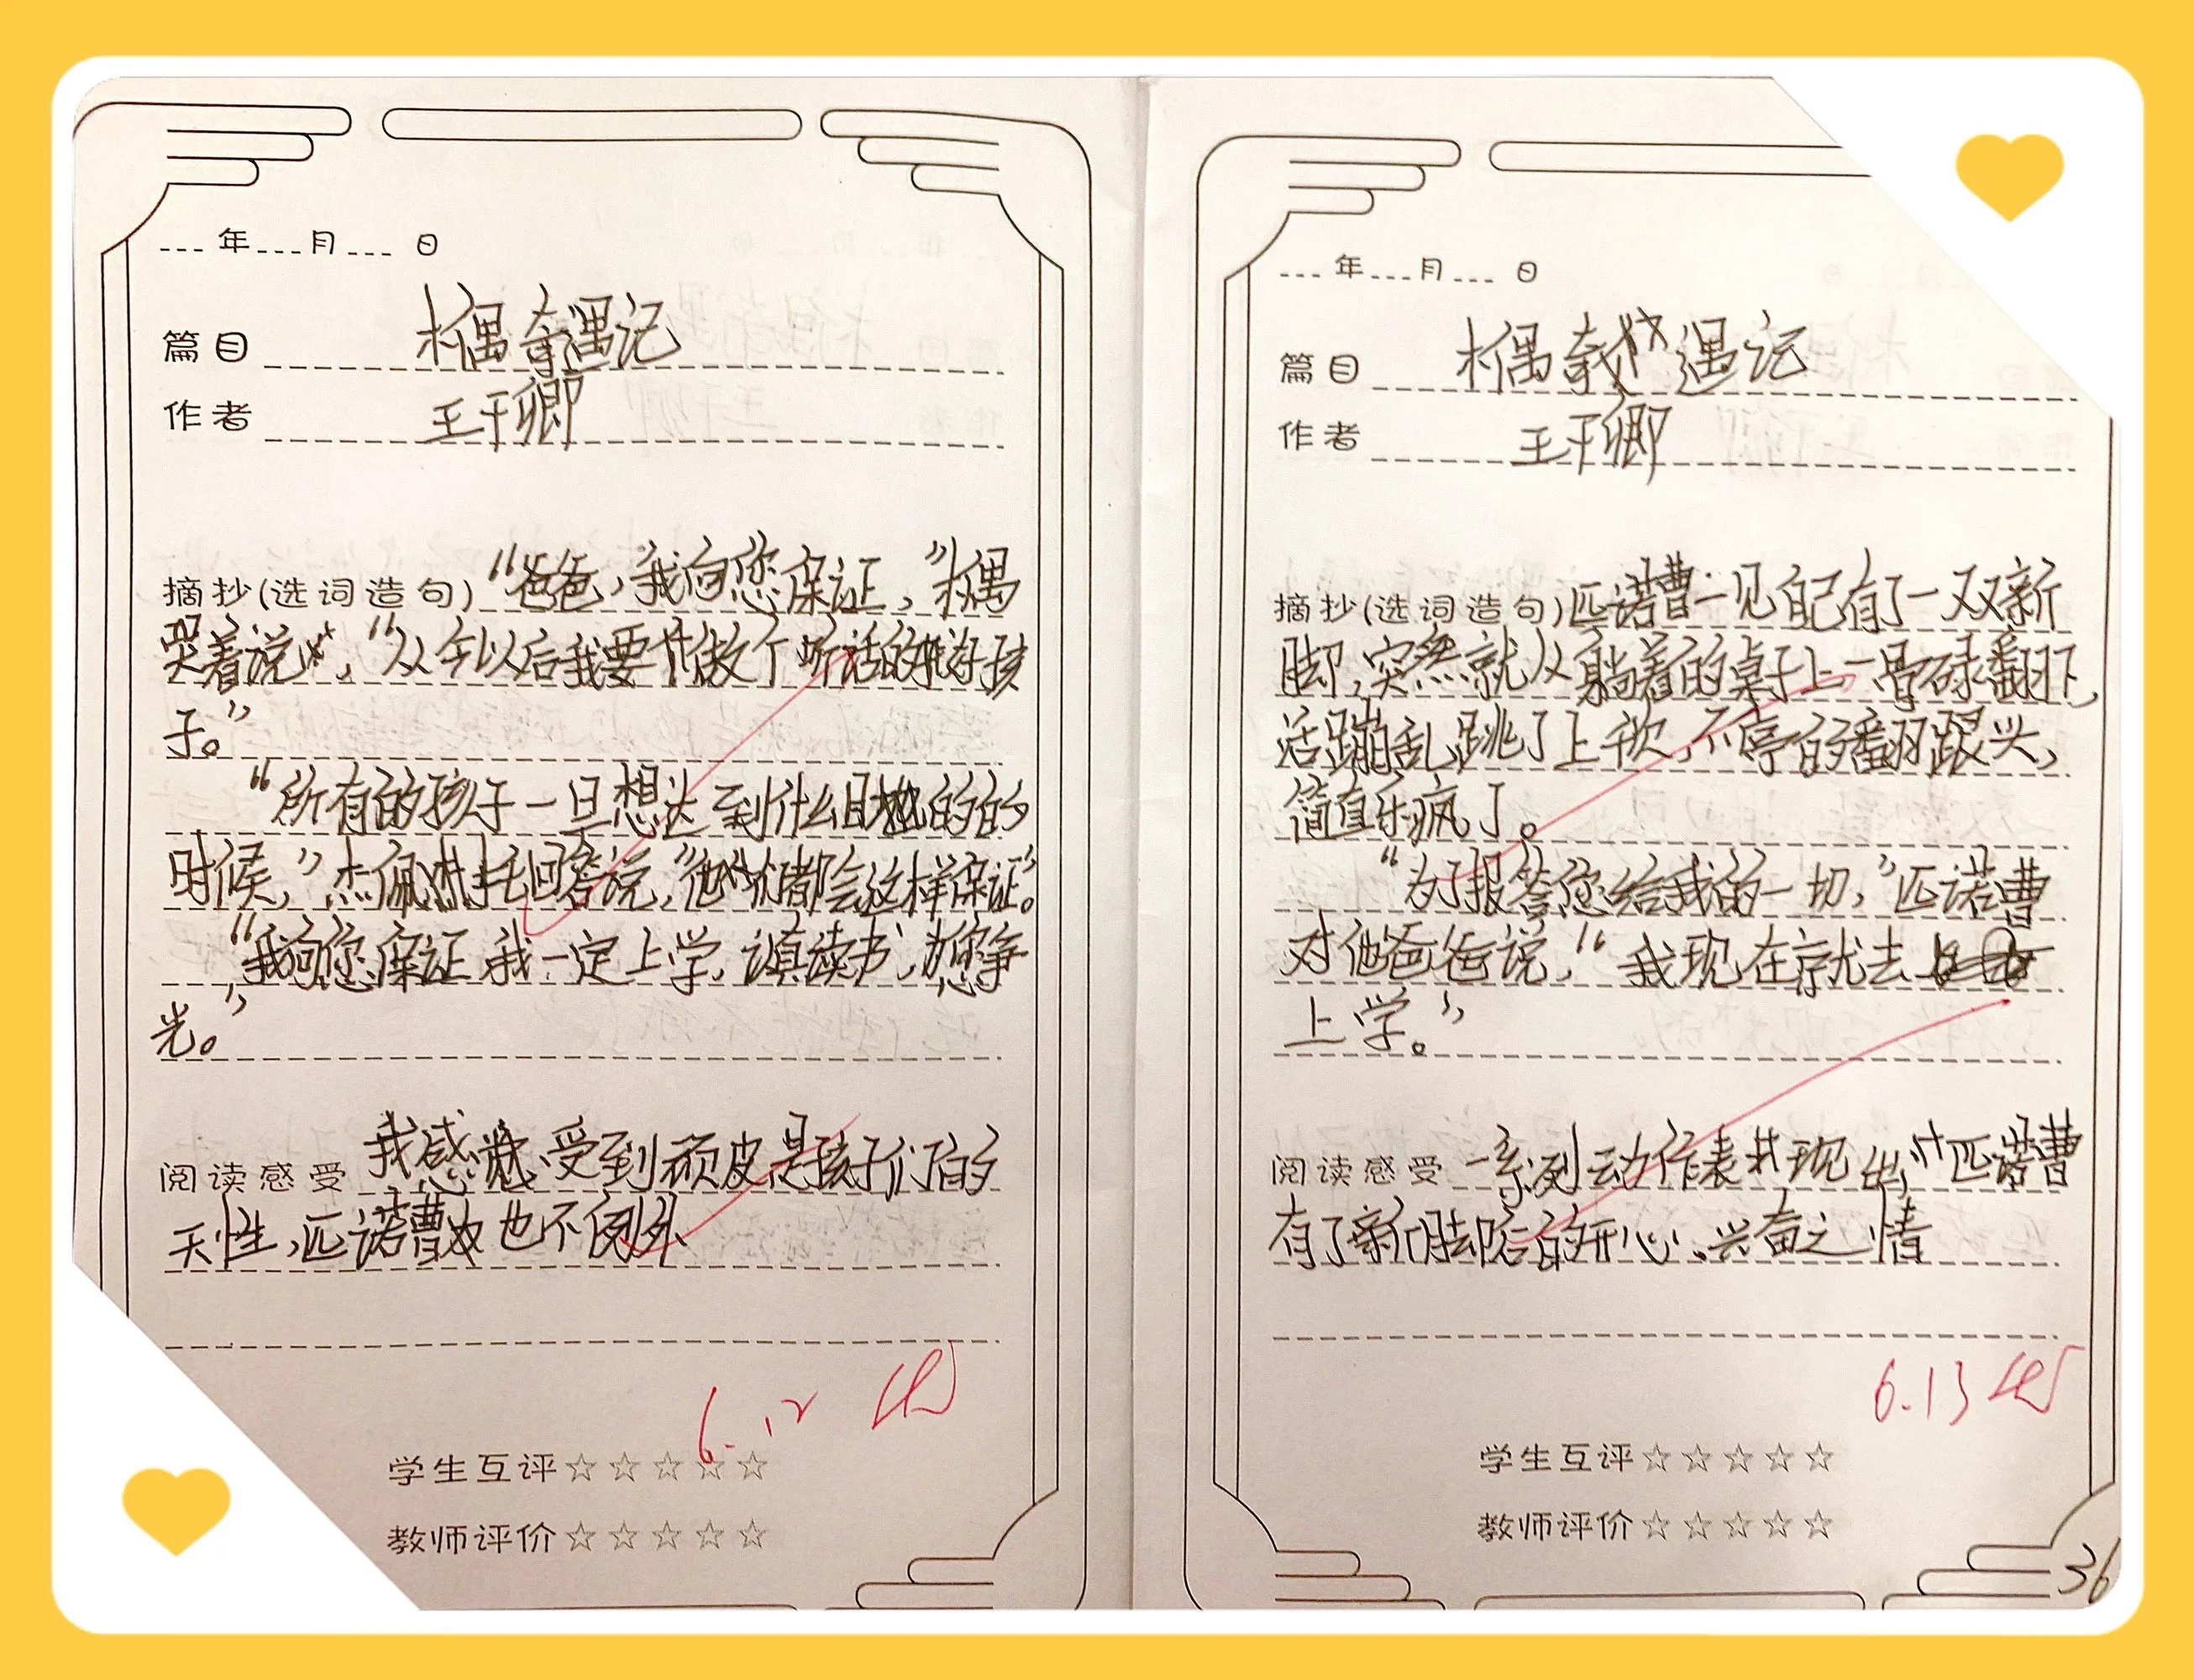 ___年___月___日
篇目 木偶奇遇记
作者 王干卿
摘抄(选词造句) “爸爸，我向您保证，”木偶
哭着说，“从今以后我要做个听话的好孩
子。”
“所有的孩子一旦想达到什么目的的
时候，”杰佩托回答说，“他们都会这样保证。”
“我向您保证，我一定上学，认真读书，为您争
光。”
阅读感受 我感受到顽皮是孩子们的
天性，匹诺曹也不例外
6.12
学生互评☆☆☆☆☆
教师评价☆☆☆☆☆
___年___月___日
篇目 木偶奇遇记
作者 王干卿
摘抄(选词造句) 匹诺曹一见自己有了一双新
脚，突然就从躺着的桌子上一骨碌翻下，
活蹦乱跳了上千次，不停的翻跟头，
简直乐疯了。
“为了报答您给我的一切，”匹诺曹
对他爸爸说，“我现在就去
上学。”
阅读感受 一系列动作表现出匹诺曹
有了新脚后的开心、兴奋之情
6.13
学生互评☆☆☆☆☆
教师评价☆☆☆☆☆
36